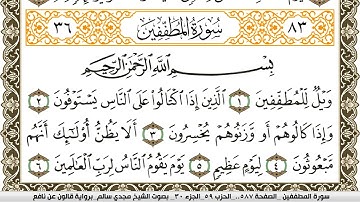 ٣٦ سُورَةُ المُطَفِّفِينَ ٨٣
بِسْمِ اللَّهِ الرَّحْمَٰنِ الرَّحِيمِ
وَيْلٌ لِّلْمُطَفِّفِينَ ١ الَّذِينَ إِذَا اكْتَالُوا عَلَى النَّاسِ يَسْتَوْفُونَ ٢
وَإِذَا كَالُوهُمْ أَو وَّزَنُوهُمْ يُخْسِرُونَ ٣ أَلَا يَظُنُّ أُولَٰئِكَ أَنَّهُم
مَّبْعُوثُونَ ٤ لِيَوْمٍ عَظِيمٍ ٥ يَوْمَ يَقُومُ النَّاسُ لِرَبِّ الْعَالَمِينَ ٦
سورة المطففين _ الصفحة ٥٨٧ .. الحزب ٥٩ _ الجزء ٣٠ _ بصوت الشيخ مجدي سالم _ برواية قالون عن نافع